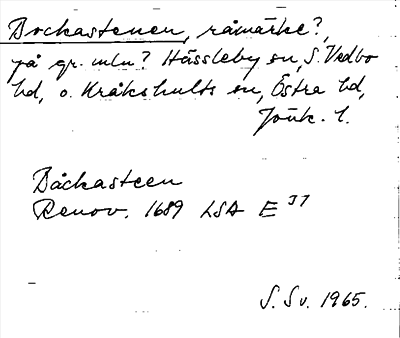 Bockastenen, råmärke?,
på gr. mln? Hässleby sn, S. Vedbo
hd, o. Kråkshults sn, Östra hd,
Jönk. l.
Båckasteen
Renov. 1689 LSA E 37
S. Sv. 1965.